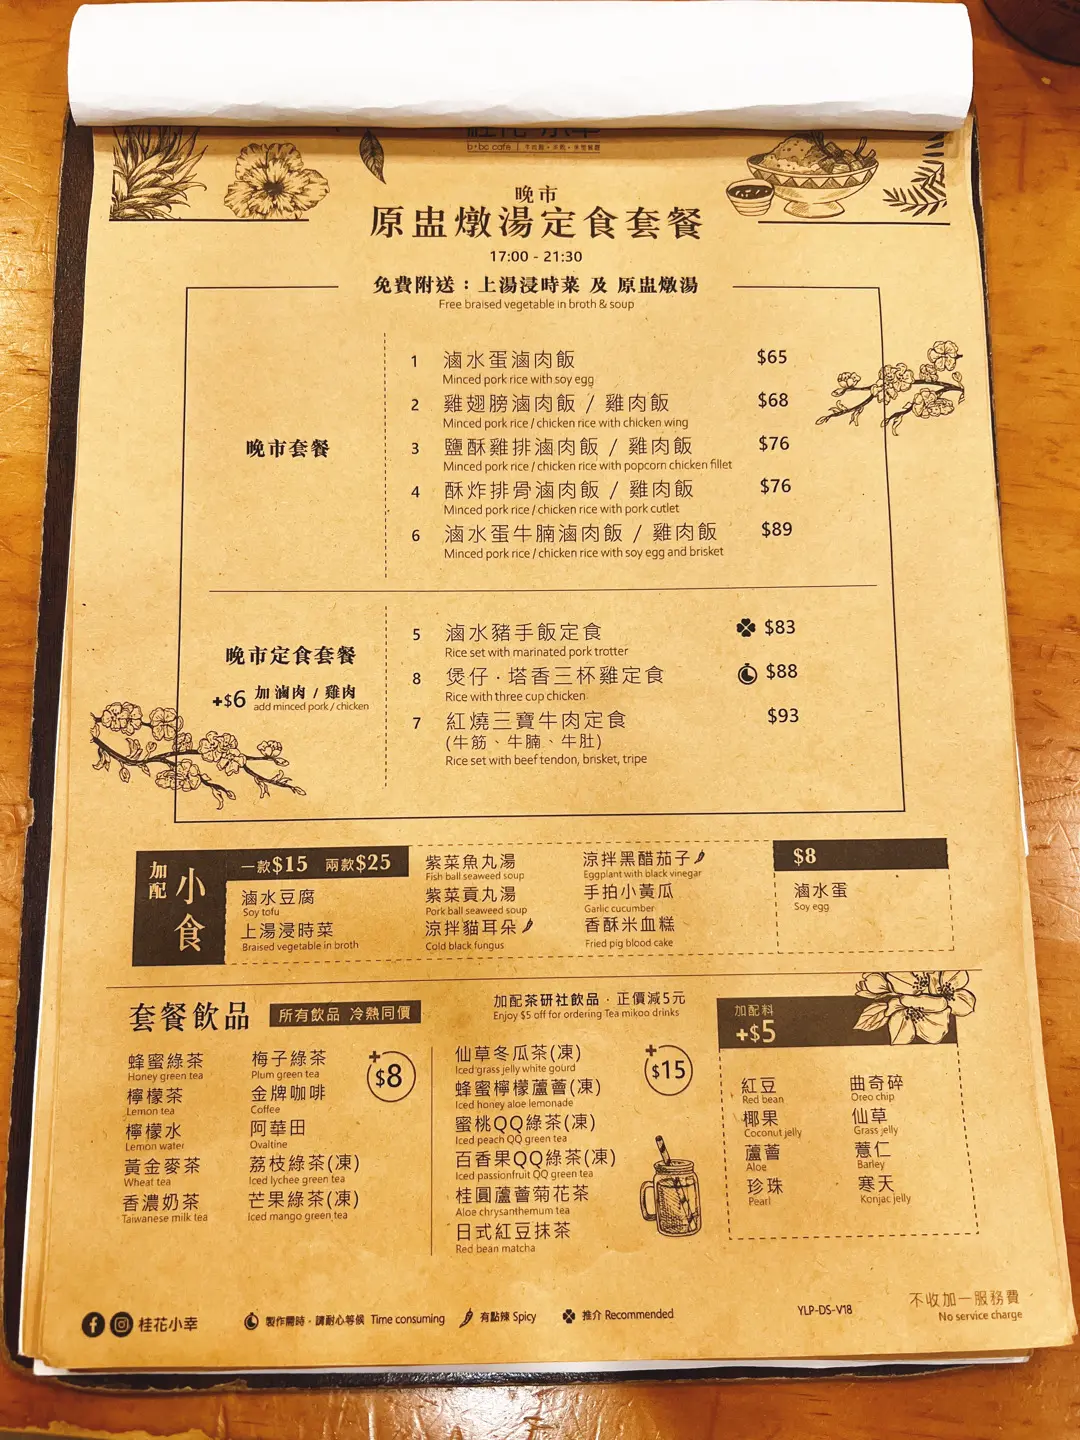 b+bc cafe
晚市
原盅燉湯定食套餐
17:00 - 21:30
免費附送：上湯浸時菜 及 原盅燉湯
Free braised vegetable in broth & soup
晚市套餐
1 滷水蛋滷肉飯 $65
Minced pork rice with soy egg
2 雞翅膀滷肉飯 / 雞肉飯 $68
Minced pork rice / chicken rice with chicken wing
3 鹽酥雞排滷肉飯 / 雞肉飯 $76
Minced pork rice / chicken rice with popcorn chicken fillet
4 酥炸排骨滷肉飯 / 雞肉飯 $76
Minced pork rice / chicken rice with pork cutlet
6 滷水蛋牛腩滷肉飯 / 雞肉飯 $89
Minced pork rice / chicken rice with soy egg and brisket
晚市定食套餐
+$6 加 滷肉 / 雞肉
add minced pork / chicken
5 滷水豬手飯定食 $83
Rice set with marinated pork trotter
8 煲仔·塔香三杯雞定食 $88
Rice with three cup chicken
7 紅燒三寶牛肉定食 $93
(牛筋、牛腩、牛肚)
Rice set with beef tendon, brisket, tripe
加配
小食
一款$15 兩款$25
滷水豆腐
Soy tofu
上湯浸時菜
Braised vegetable in broth
紫菜魚丸湯
Fish ball seaweed soup
紫菜貢丸湯
Pork ball seaweed soup
涼拌貓耳朵
Cold black fungus
涼拌黑醋茄子
Eggplant with black vinegar
手拍小黃瓜
Garlic cucumber
香酥米血糕
Fried pig blood cake
$8
滷水蛋
Soy egg
套餐飲品
所有飲品 冷熱同價
+$8
蜂蜜綠茶
Honey green tea
檸檬茶
Lemon tea
檸檬水
Lemon water
黃金麥茶
Wheat tea
香濃奶茶
Taiwanese milk tea
梅子綠茶
Plum green tea
金牌咖啡
Coffee
阿華田
Ovaltine
荔枝綠茶(凍)
Iced lychee green tea
芒果綠茶(凍)
Iced mango green tea
加配茶研社飲品·正價減5元
Enjoy $5 off for ordering Tea mikoo drinks
+$15
仙草冬瓜茶(凍)
Iced grass jelly white gourd
蜂蜜檸檬蘆薈(凍)
Iced honey aloe lemonade
蜜桃QQ綠茶(凍)
Iced peach QQ green tea
百香果QQ綠茶(凍)
Iced passionfruit QQ green tea
桂圓蘆薈菊花茶
Aloe chrysanthemum tea
日式紅豆抹茶
Red bean matcha
加配料
+$5
紅豆
Red bean
椰果
Coconut jelly
蘆薈
Aloe
珍珠
Pearl
曲奇碎
Oreo chip
仙草
Grass jelly
薏仁
Barley
寒天
Konjac jelly
桂花小幸
製作需時·請耐心等候 Time consuming
有點辣 Spicy
推介 Recommended
YLP-DS-V18
不收加一服務費
No service charge